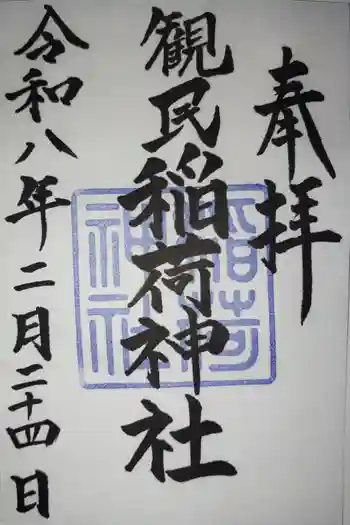 奉拝
観民稲荷神社
令和八年二月二十四日
稲荷
神社